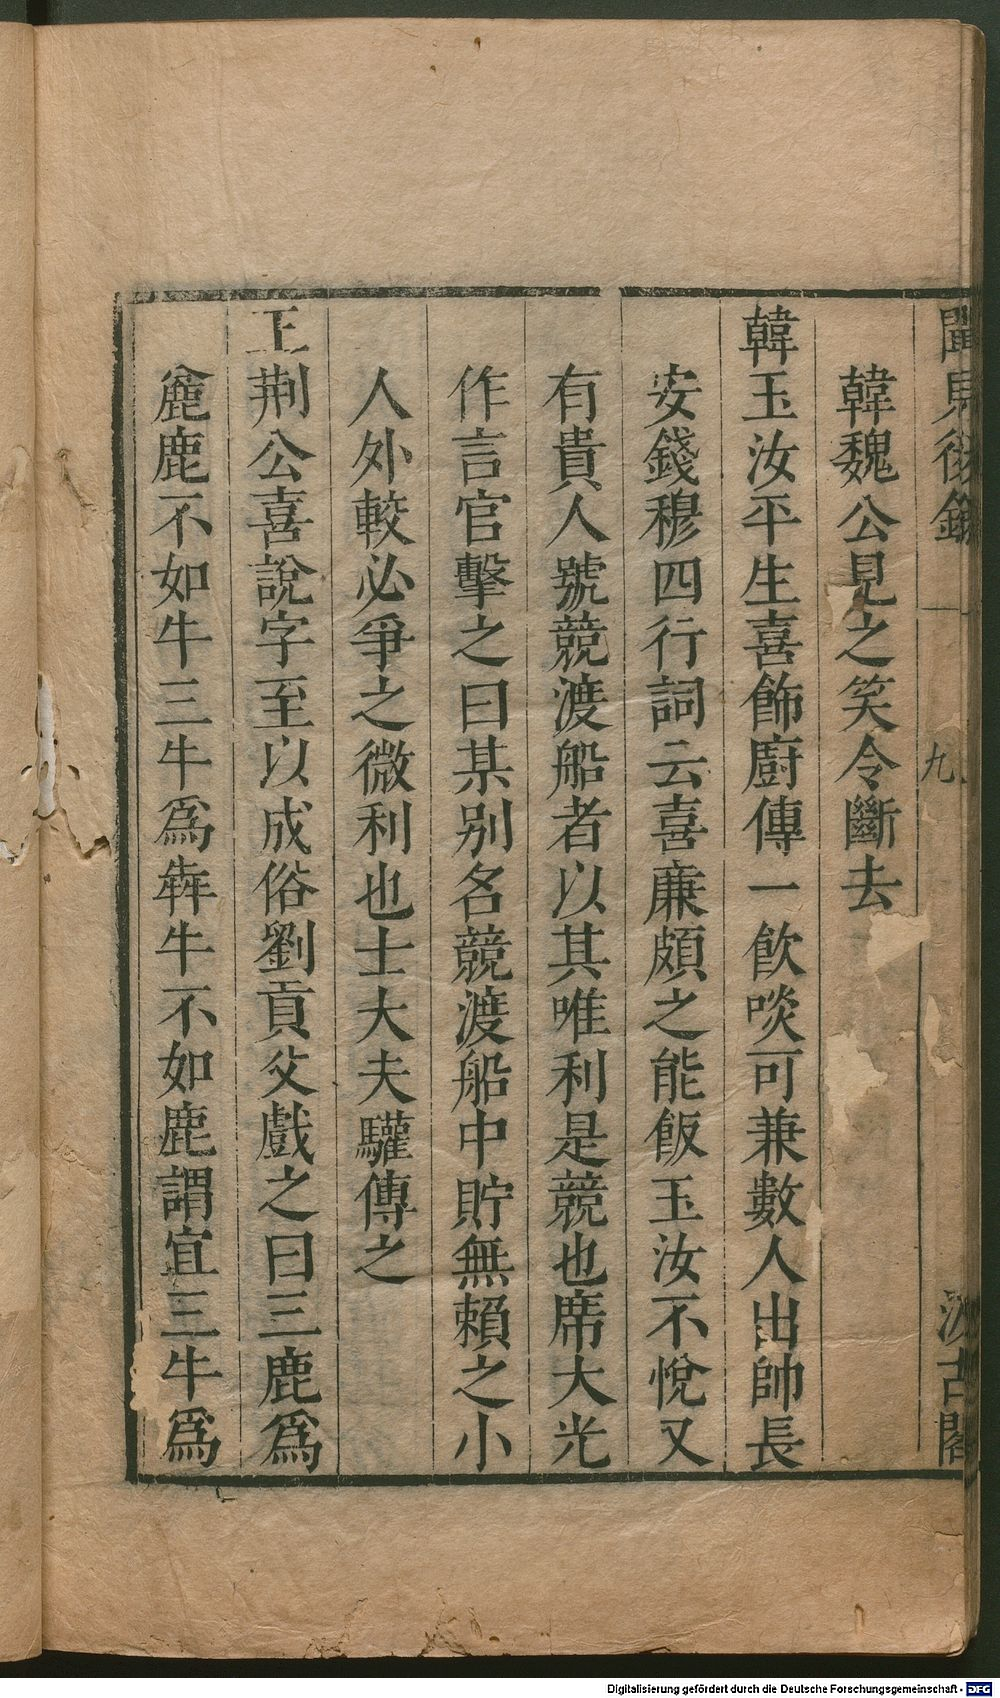 聞見後錄
九
汲古閣
韓魏公見之笑令斷去
韓玉汝平生喜飾廚傳一飲啖可兼數人出帥長
安錢穆四行詞云喜廉頗之能飯玉汝不悅又
有貴人號競渡船者以其唯利是競也席大光
作言官擊之曰某别名競渡船中貯無賴之小
人外較必爭之微利也士大夫驩傳之
王荆公喜說字至以成俗劉貢父戲之曰三鹿爲
麤鹿不如牛三牛爲犇牛不如鹿謂宜三牛爲
Digitalisierung gefördert durch die Deutsche Forschungsgemeinschaft - DFG